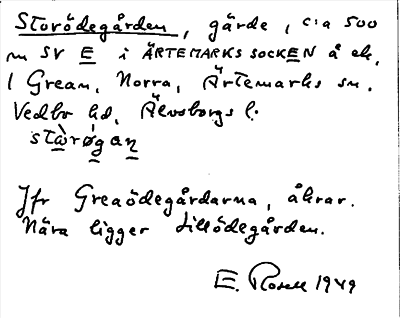 Storödegården, gärde, c:a 500
m SV E i ÄRTEMARKS SOCKEN å ek.
1 Grean, Norra, Ärtemarks sn.
Vedbo hd, Älvsborgs l.
stẁrǿgan
Jfr Greaödegårdarna, åkrar.
Nära ligger Lillödegården.
E. Rosell 1949